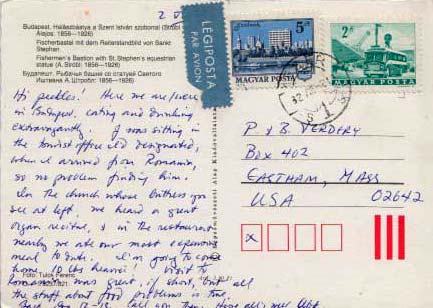 Budapest. Halászbástya a Szent István szoborral (Stróbl
Alajos: 1856—1926)
Fischerbastei mit dem Reiterstandbild von Sankt
Stephan.
Fishermen's Bastion with St. Stephen's equestrian
statue (A. Stróbl: 1856—1926)
Будапешт. Рыбачья башня со статуей Святого
Иштвана А. Штробл: 1856—1926)
LÉGIPOSTA
PAR AVION
5Ft
MAGYAR POSTA
2Ft
MAGYAR POSTA
Hi peebles. Here we are
in Budapest, eating and drinking
extravagantly. I was sitting in
the tourist office I'd designated,
when arrived from Romania,
so no problem finding him!
In the church whose buttress you
see at left, we heard a great
organ recital, & in the restaurant
nearby we ate our most expensive
meal to date. I'm going to come
home 10 lbs heavier! Visit to
Romania was great, if short, but all
the stuff about food problems is true
Foto: Tulok Ferenc
P & B VERDERY
BOX 402
EASTHAM, MASS
02642
USA
X